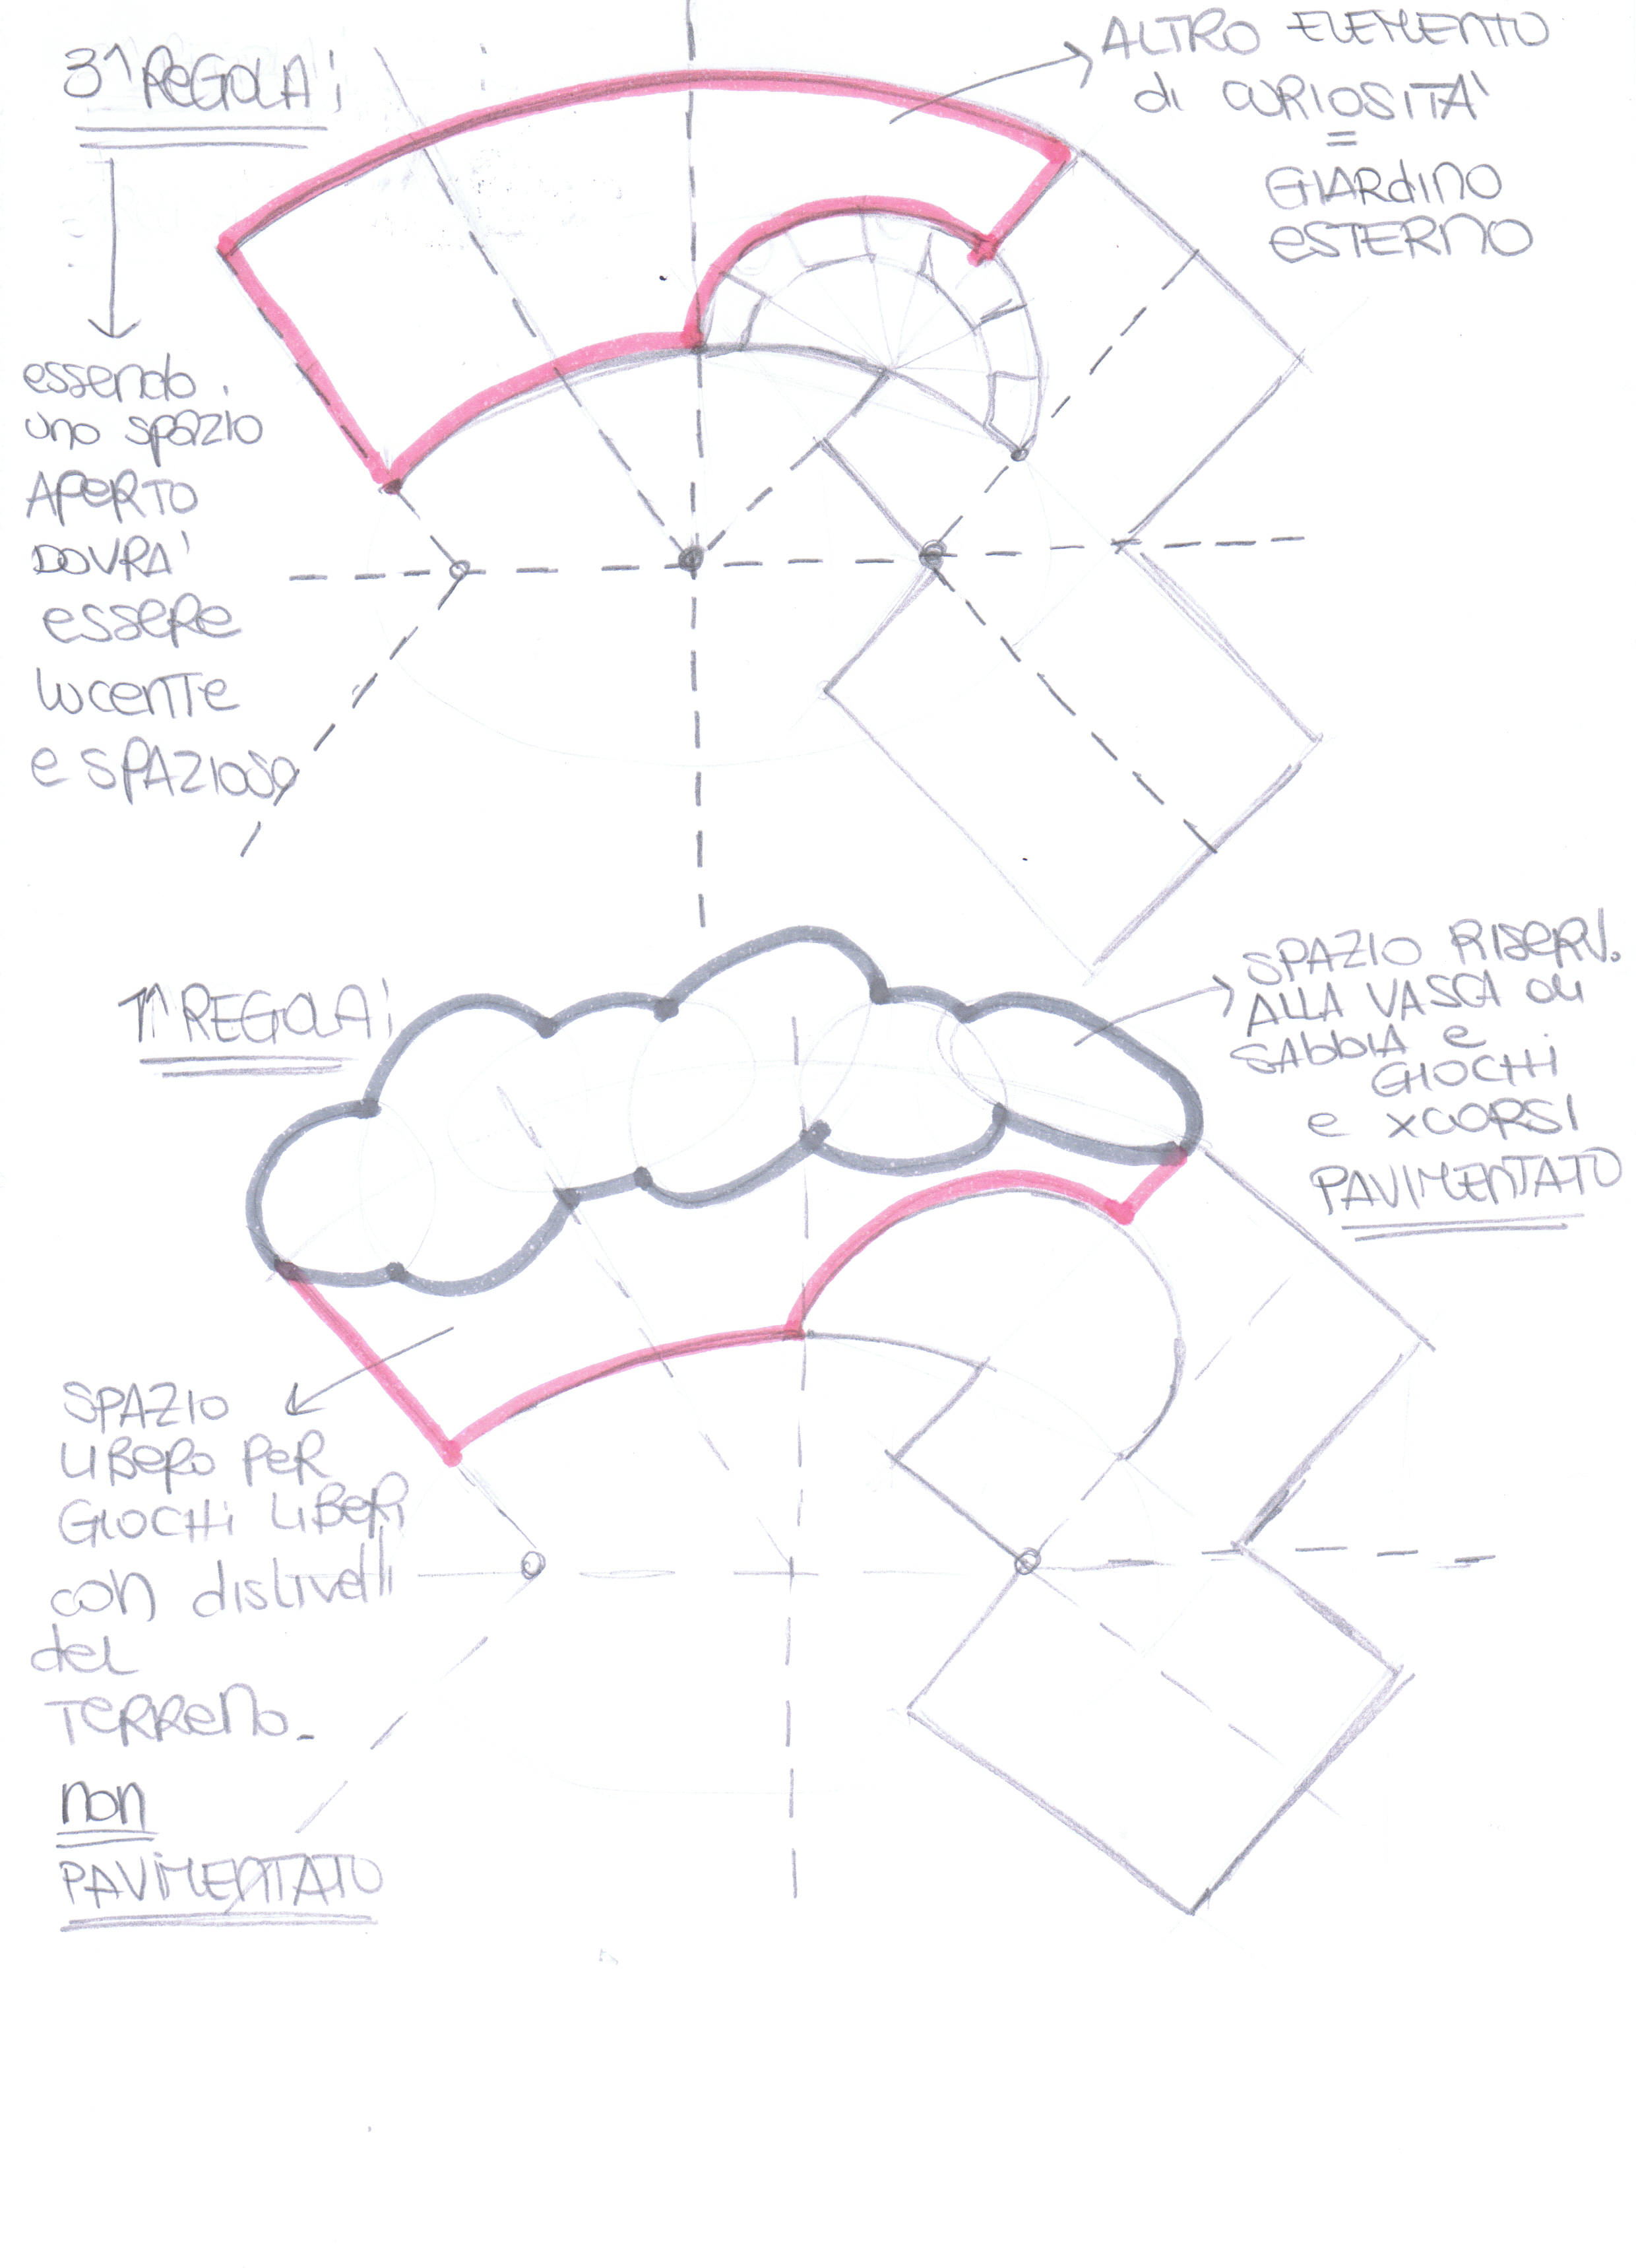 3^ REGOLA:
ALTRO ELEMENTO
di CURIOSITA'
=
GIARDINO
ESTERNO
essendo
uno spazio
APERTO
DOVRA'
essere
lucente
e SPAZIOSO
1^ REGOLA:
SPAZIO RISERV.
ALLA VASCA di
SABBIA e
GIOCHI
e xCORSI
PAVIMENTATO
SPAZIO
LIBERO PER
GIOCHI LIBERI
con dislivelli
del
TERRENO_
non
PAVIMENTATO